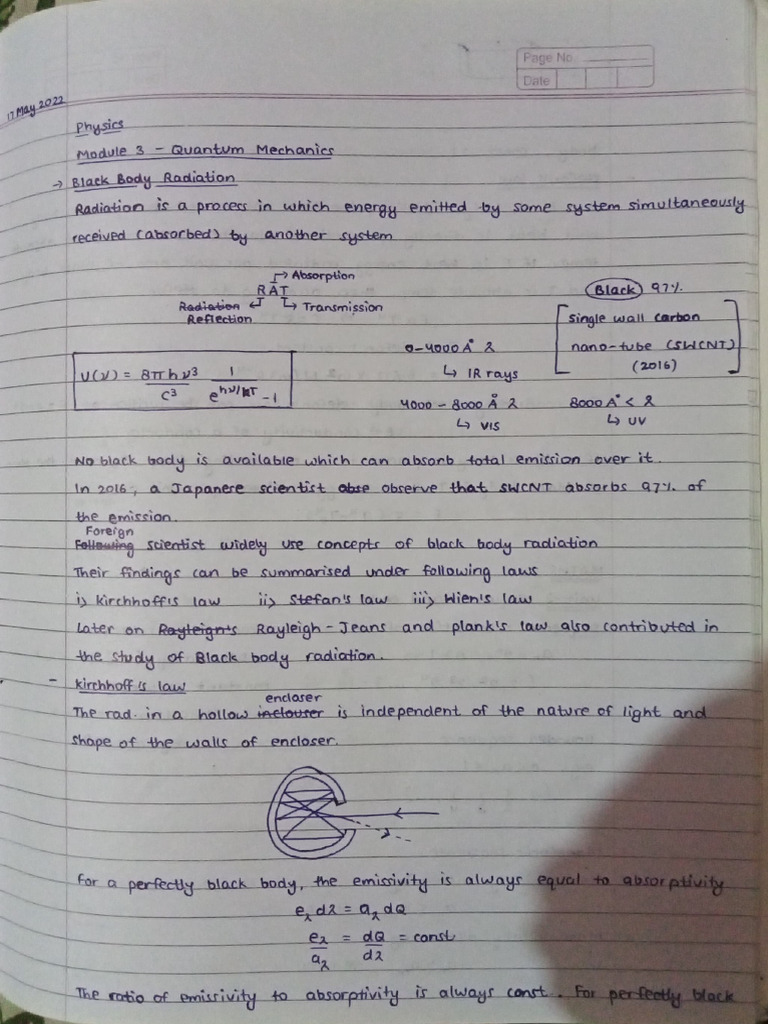 Page No.
Date
17 May 2022
Physics
Module 3 - Quantum Mechanics
→ Black Body Radiation
Radiation is a process in which energy emitted by some system simultaneously
received (absorbed) by another system
→ Absorption
RAT
Radiation ↵ ↳ Transmission
Reflection
Black 97%
[single wall carbon
nano-tube (SWCNT)
(2016)]
U(ν) = 8πhν³/c³ 1/(e^hν/kT - 1)
0-4000 Å λ
↳ IR rays
4000 - 8000 Å λ
↳ VIS
8000 Å < λ
↳ UV
No black body is available which can absorb total emission over it.
In 2016, a Japanese scientist obse observe that SWCNT absorbs 97% of
the emission.
Foreign
Following scientist widely use concepts of black body radiation
Their findings can be summarised under following laws
i) Kirchhoff's law ii) Stefan's law iii) Wien's law
Later on Rayleign's Rayleigh-Jeans and plank's law also contributed in
the study of Black body radiation.
- Kirchhoff's law
encloser
The rad. in a hollow inclouser is independent of the nature of light and
shape of the walls of encloser.
For a perfectly black body, the emissivity is always equal to absorptivity
e_λ dλ = a_λ dQ
e_λ/a_λ = dQ/dλ = const
The ratio of emissivity to absorptivity is always const. For perfectly black